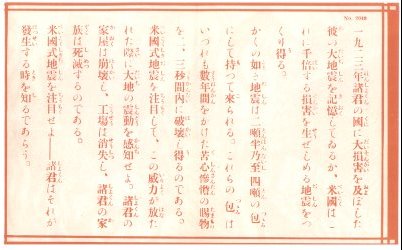 一九二三年諸君の國に大損害を及ぼした
彼の大地震を記憶してゐるか、米國はこ
れに千倍する損害を生ぜしめる地震をつ
くり得る。
かくの如き地震は二噸半乃至四噸の包
にして持つて來られる。これらの包は
いづれも數年間をかけた苦心慘憺の賜物
を二、三秒間内に破壞し得るのである。
米國式地震を注目して、この威力が放た
れた際に大地の震動を感知せよ。諸君の
家屋は崩壞し、工場は消失し、諸君の家
族は死滅するのである。
米國式地震を注目せよ――諸君はそれが
發生する時を知るであらう。